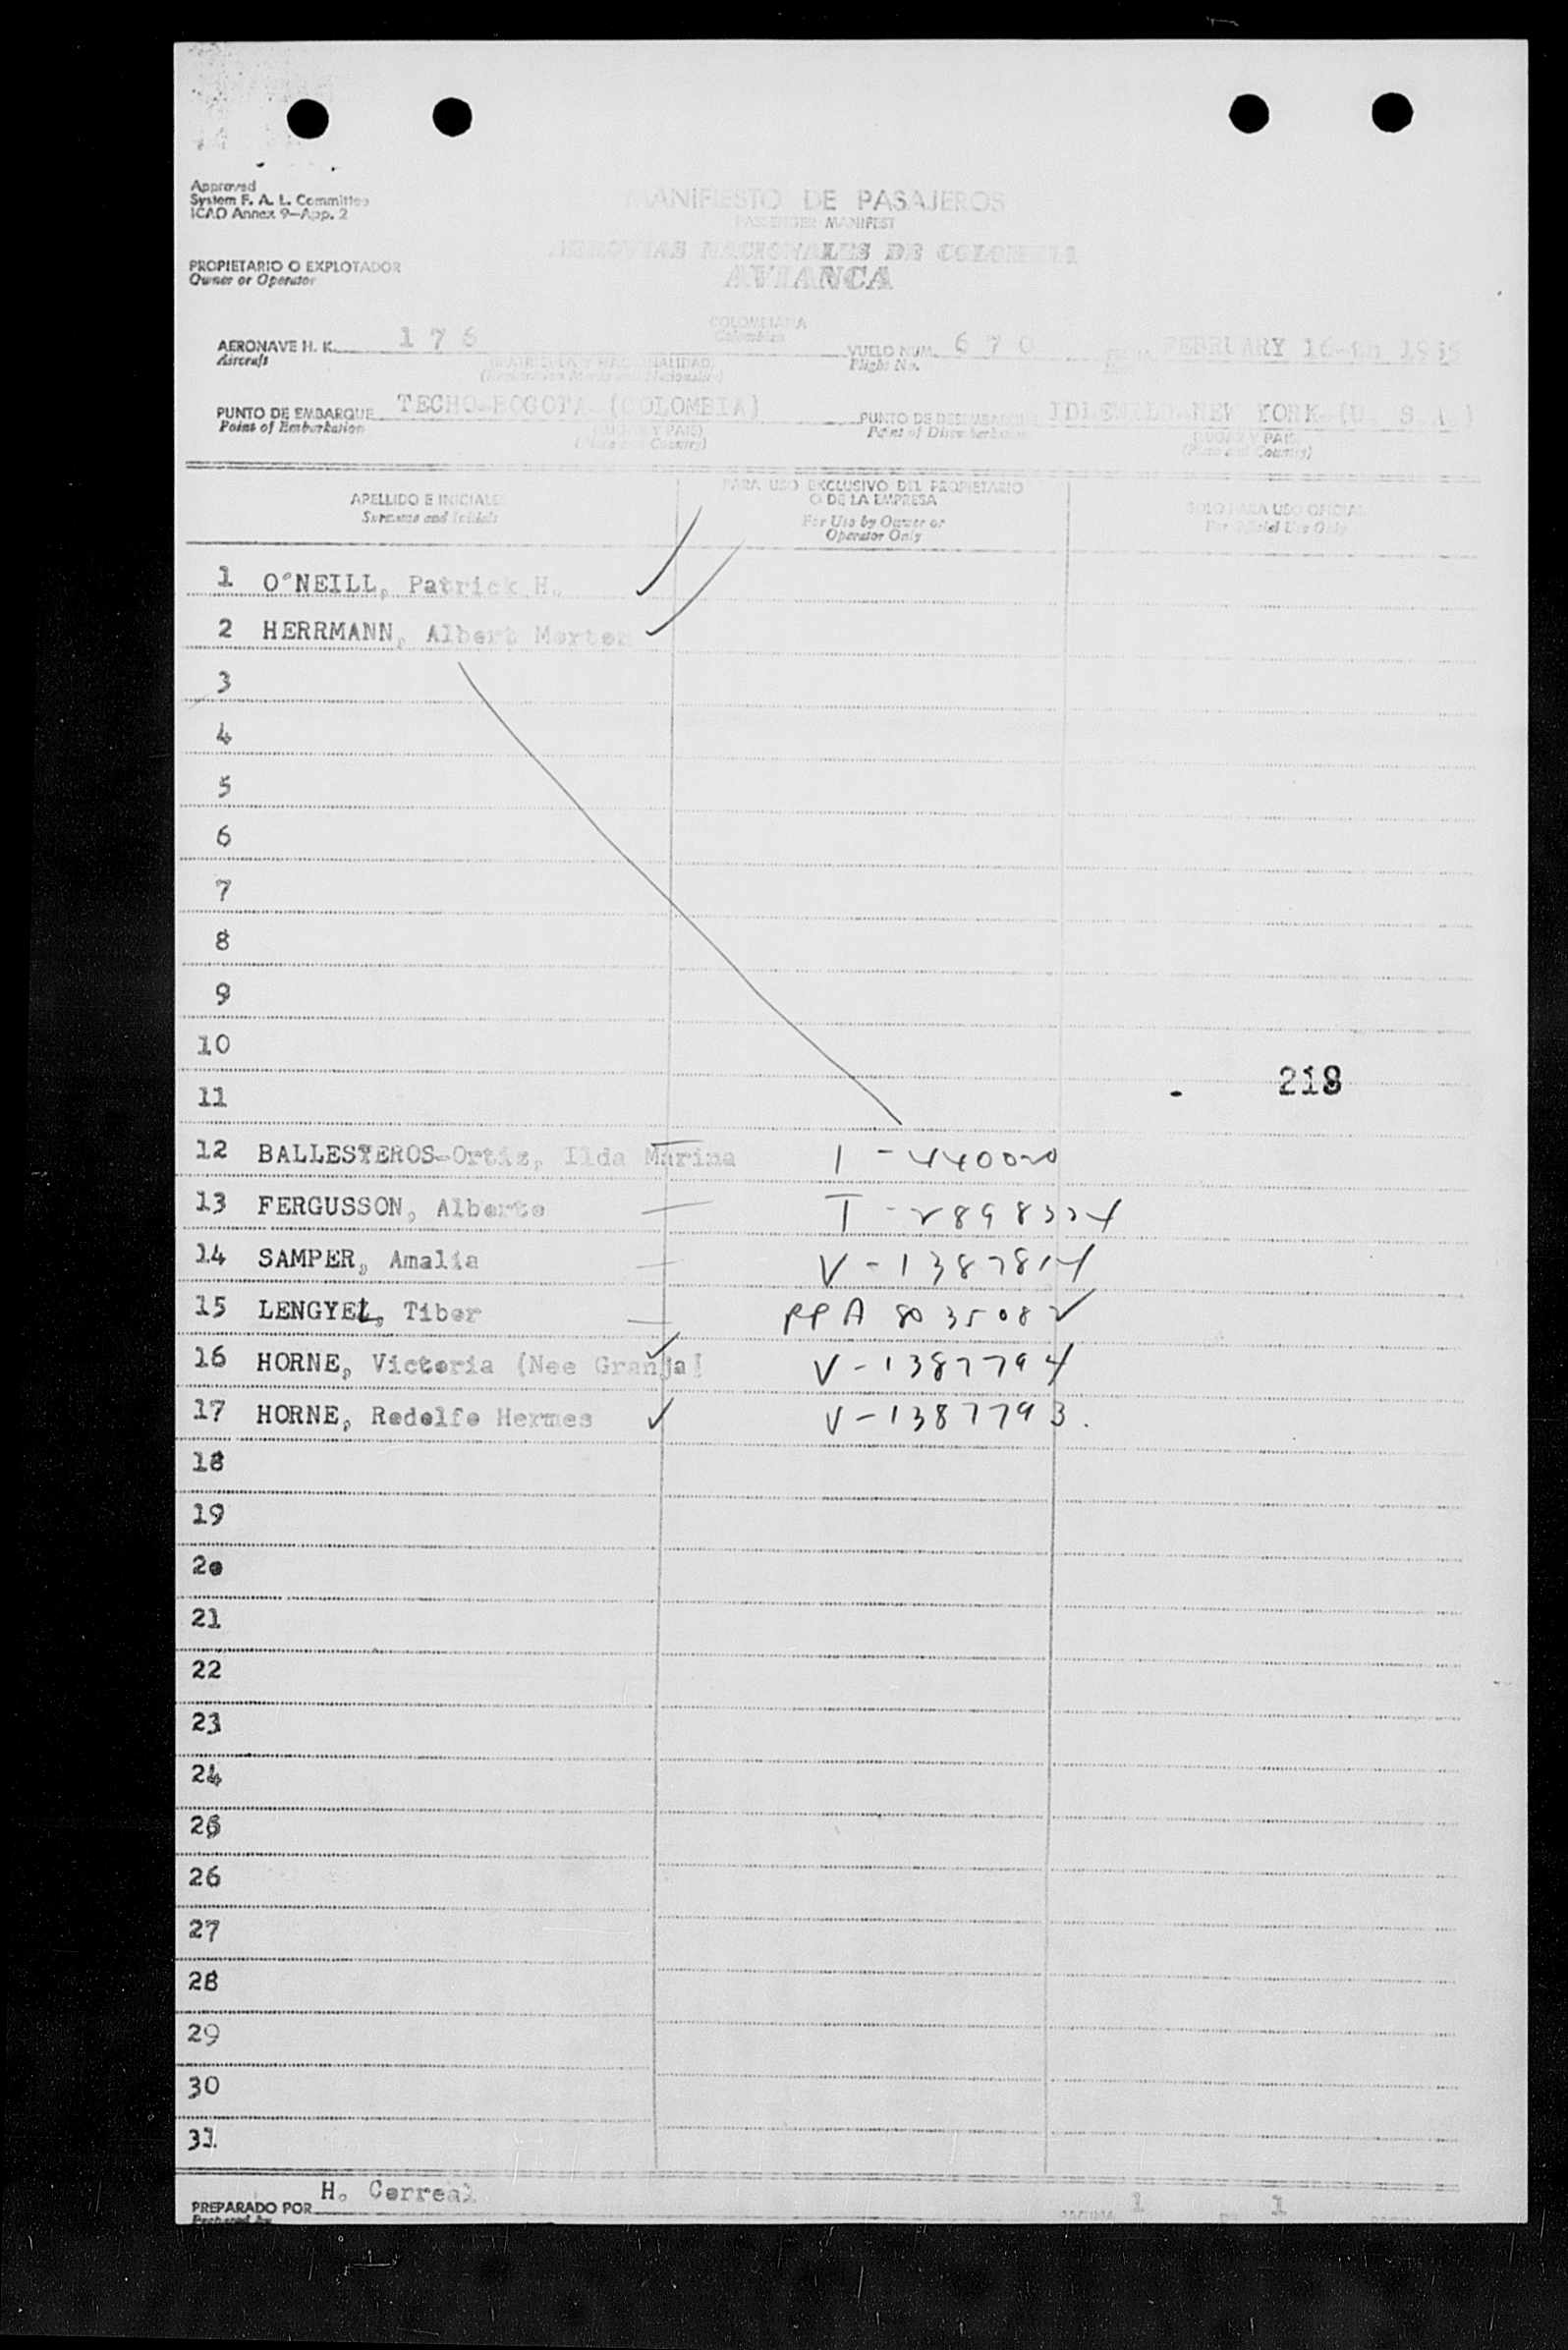 Approved
System F. A. L. Committee
ICAO Annex 9—App. 2
MANIFIESTO DE PASAJEROS
PASSENGER MANIFEST
AEROVIAS NACIONALES DE COLOMBIA
AVIANCA
PROPIETARIO O EXPLOTADOR
Owner or Operator
COLOMBIANA
Colombian
AERONAVE H. K. 176 VUELO NUM. 670 FEBRUARY 16-th
Aircraft Flight No.
PUNTO DE EMBARQUE TECHO-BOGOTA-(COLOMBIA) PUNTO DE DESEMBARQUE IDLEWILD-NEW YORK-(U. S. A.)
Point of Embarkation Point of Disembarkation
APELLIDO E INICIALES
Surname and Initials
PARA USO EXCLUSIVO DEL PROPIETARIO
O DE LA EMPRESA
For Use by Owner or
Operator Only
SOLO PARA USO OFICIAL
For Official Use Only
1 O'NEILL, Patrick H.
2 HERRMANN, Albert
3
4
5
6
7
8
9
10
218
11
12 BALLESTEROS-Ortiz, Ilda Marina
13 FERGUSSON, Alberto
14 SAMPER, Amalia V-1387814
15 LENGYEL, Tibor
16 HORNE, Victoria (Nee Granja) V-1387794
17 HORNE, Rodolfo Hermes V-1387793.
18
19
20
21
22
23
24
25
26
27
28
29
30
31
PREPARADO POR H. Correal
Prepared by
PAGINA 1 DE 1